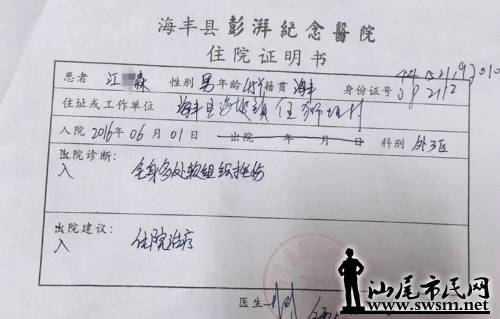 海丰县彭湃纪念醫院
住院证明书
患者 江 森 性别 男 年龄 45岁 籍贯 海丰 身份证号
住址或工作单位 海丰县
入院 2016年 06月 01日 出院 年 月 日 科别 外3区
出院诊断: 全身多处软组织挫伤
入
出院建议: 住院治疗
入
医生
汕尾市民网
www.swsm.net